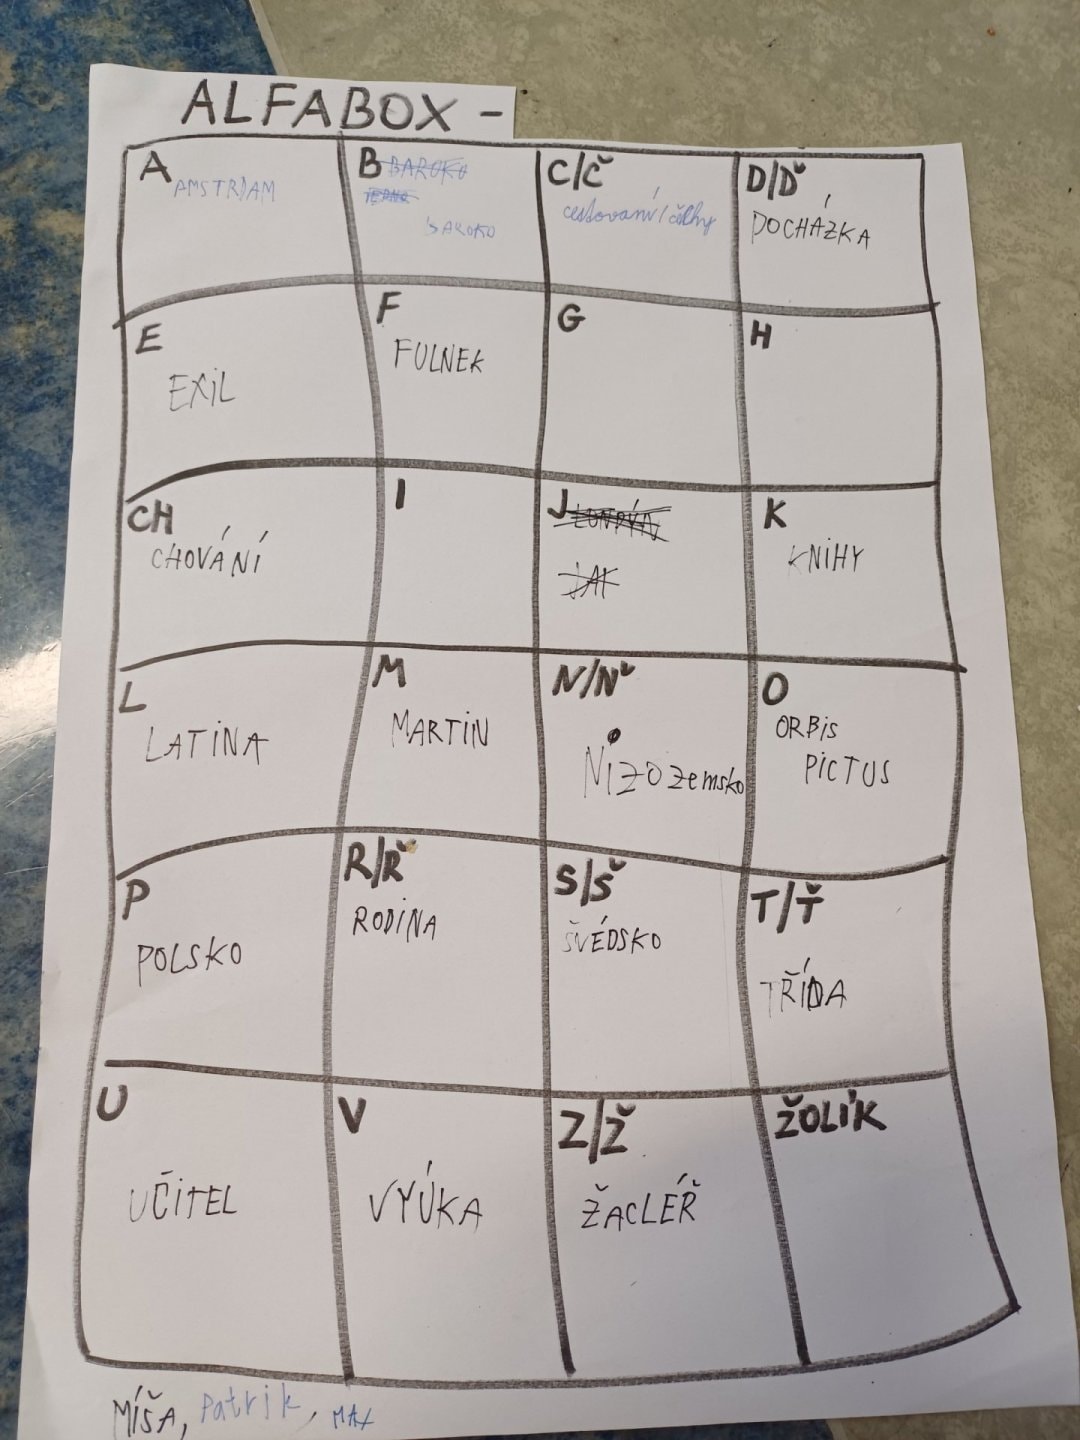 ALFABOX -
A
AMSTRDAM
B BAROKO
BAROKO
C/Č
cestovaní/
D/Ď
DOCHÁZKA
E
EXIL
F
FULNEK
G
H
CH
CHOVÁNÍ
I
J LONDÝN
JAK
K
KNIHY
L
LATINA
M
MARTIN
N/Ň
Nizozemsko
O
ORBIS
PICTUS
P
POLSKO
R/Ř
RODINA
S/Š
ŠVÉDSKO
T/Ť
TŘÍDA
U
UČITEL
V
VÝUKA
Z/Ž
ŽACLÉŘ
ŽOLÍK
MÍŠA, Patrik, MAX